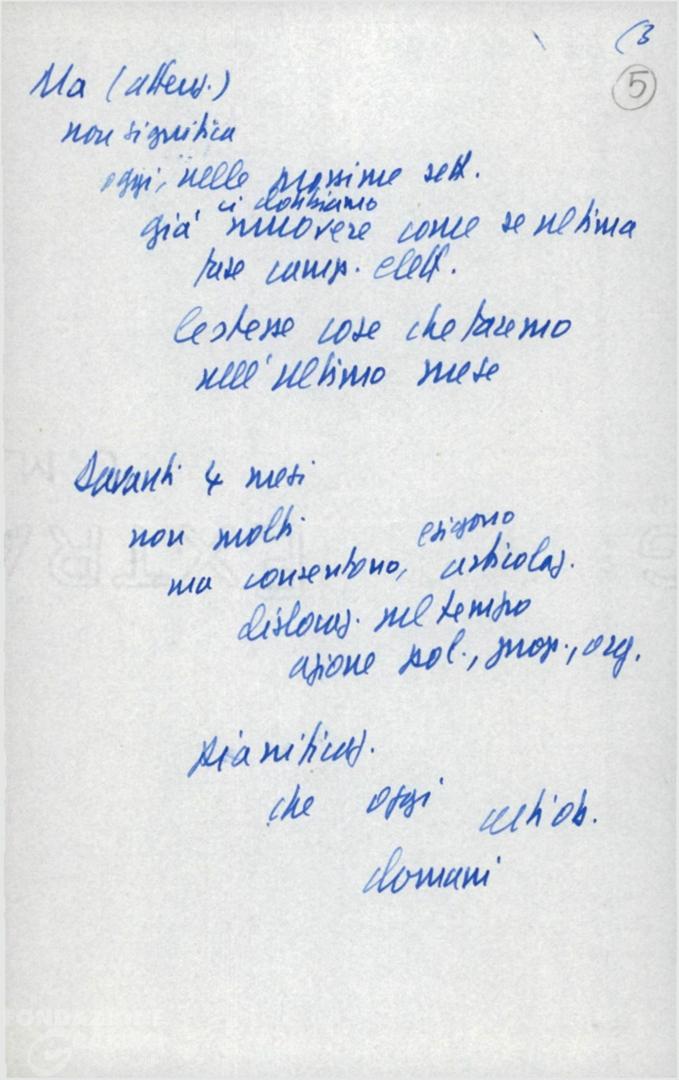 (3
5
Ma (attenz.)
non significa
oggi, nelle prossime sett.
ci dobbiamo
già muovere come se ultima
fase camp. elett.
le stesse cose che faremo
nell'ultimo mese
Davanti 4 mesi
non molti
esigono
ma consentono, articolaz.
dislocaz. nel tempo
azione pol., prop., org.
pianificaz.
che oggi certi ob.
domani
FONDAZIONE